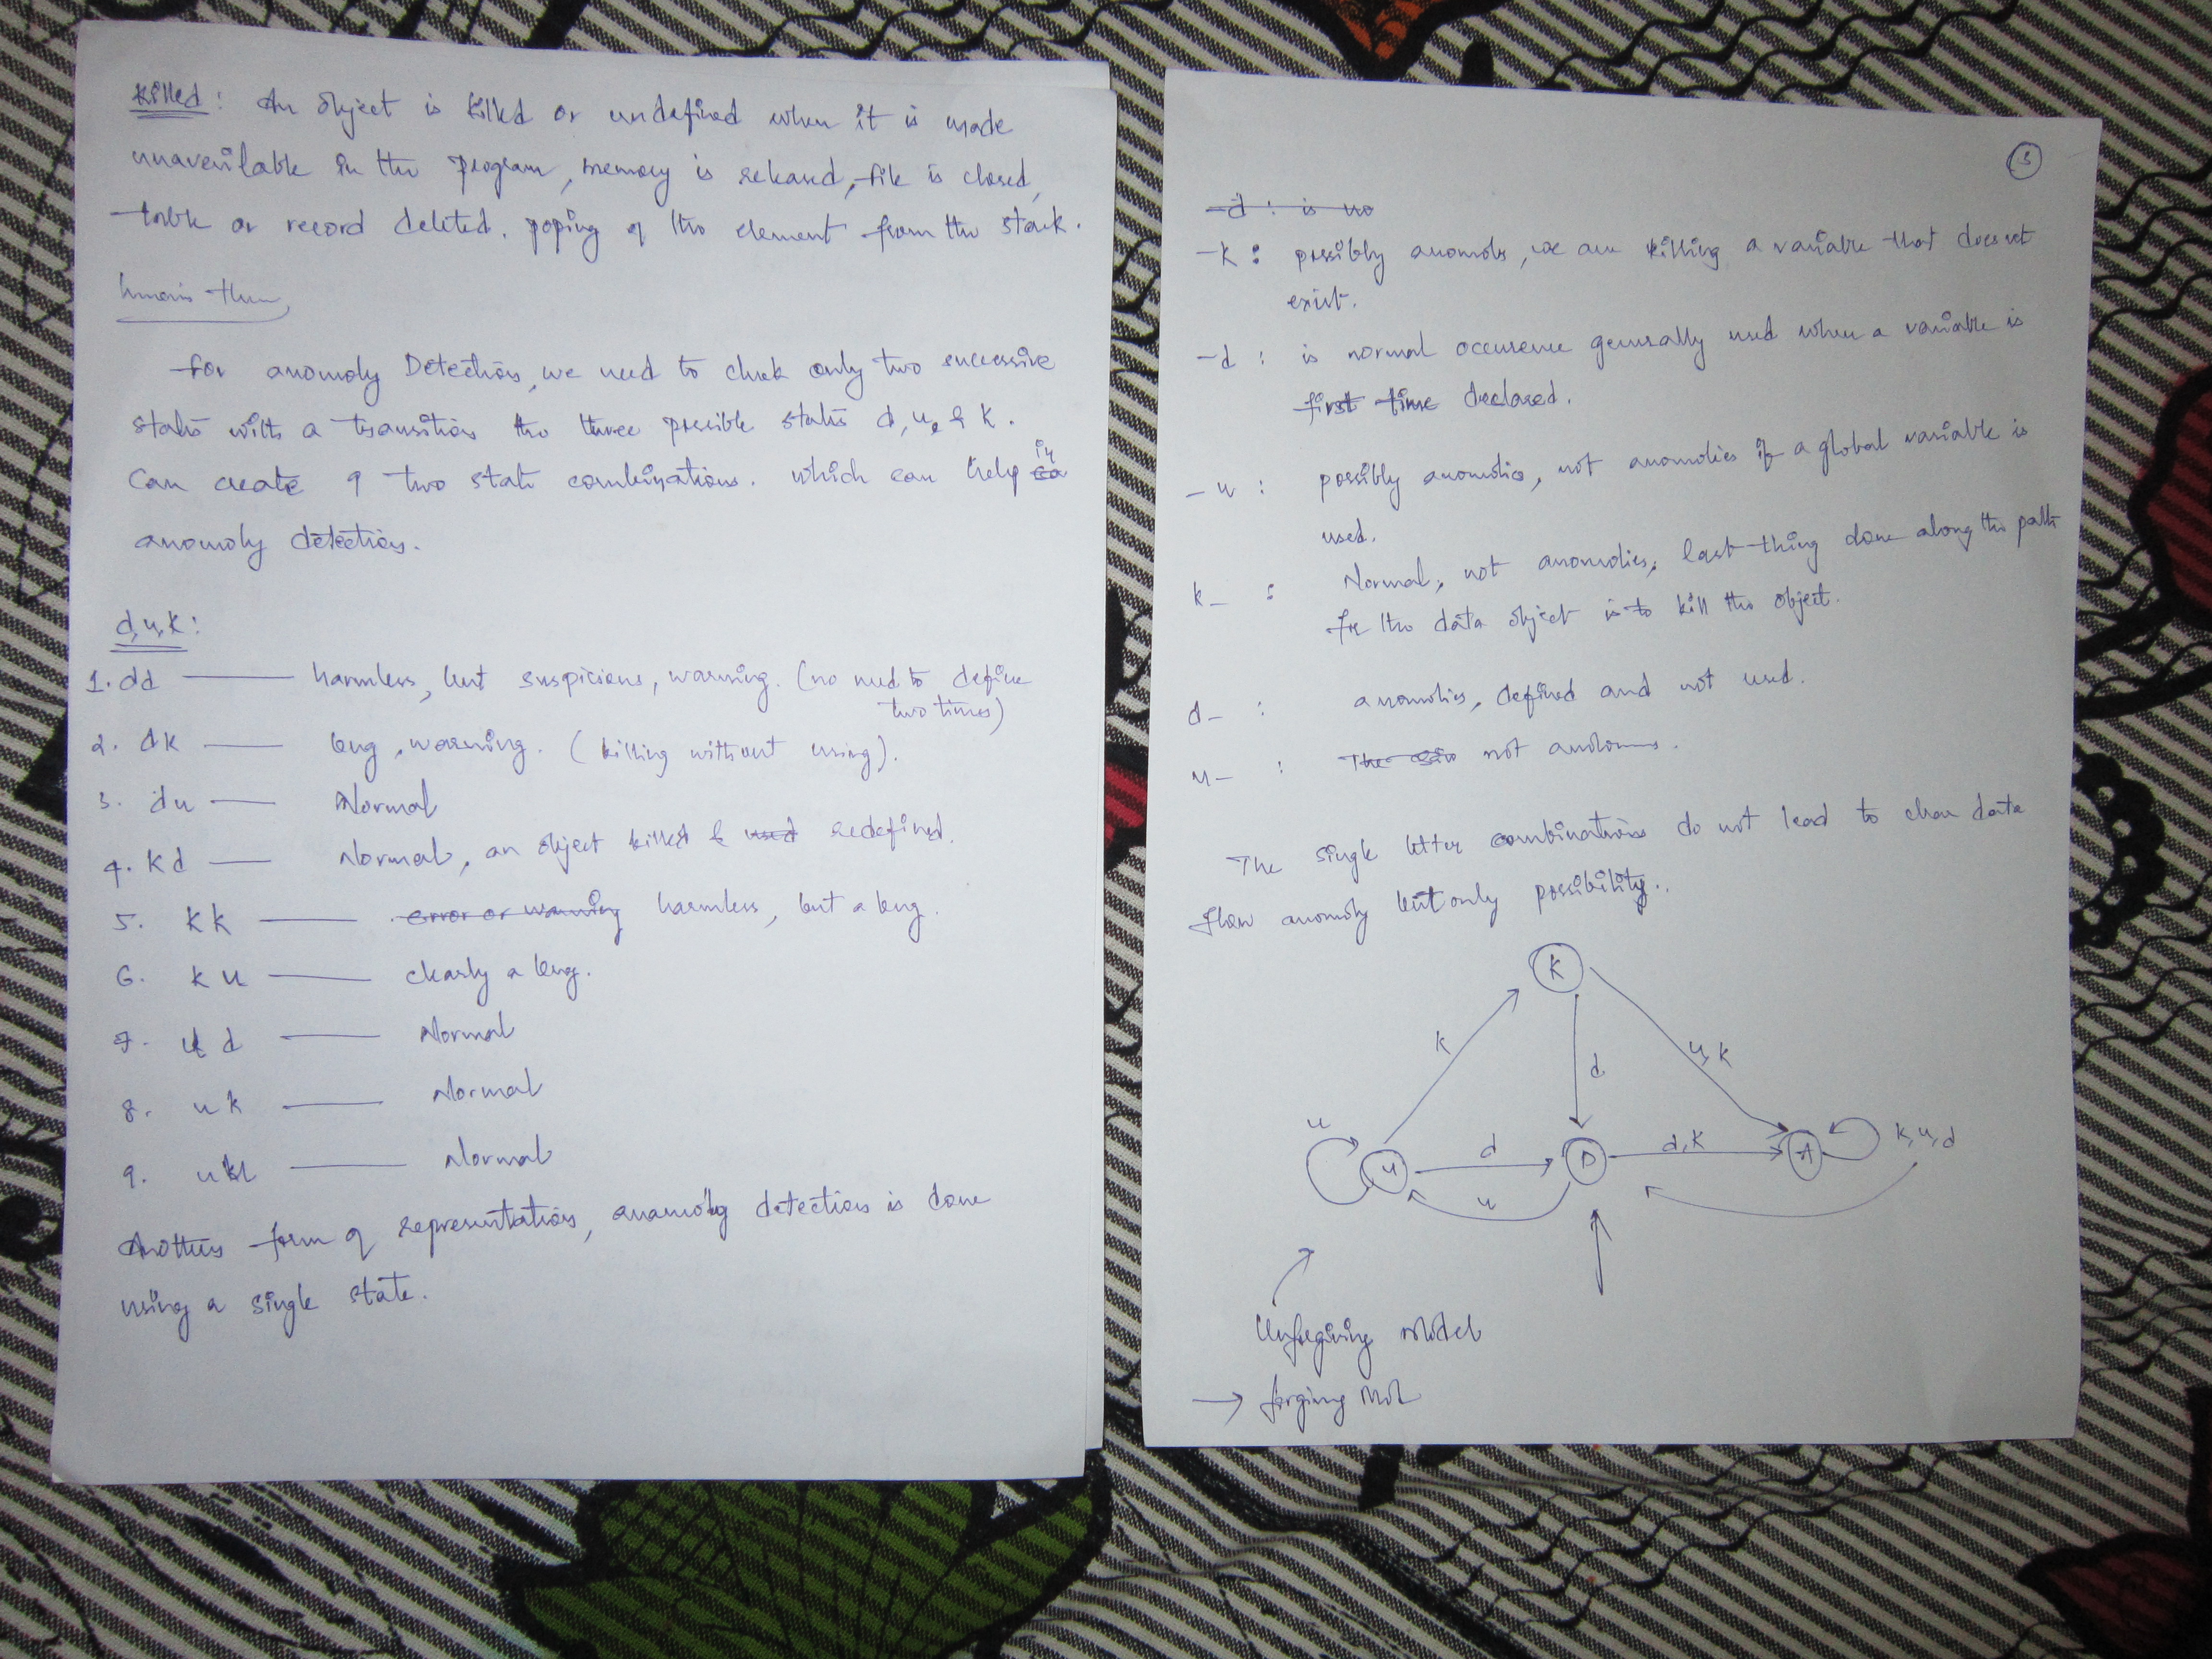 killed: An object is killed or undefined when it is made
unavailable in the program, memory is released, file is closed,
table or record deleted. poping of the element from the stack.
for anomoly Detection, we need to check only two successive
states with a transition the three possible states d, u, & k.
Can create 9 two state combinations. which can help in
anomoly detection.
d, u, k:
1. dd — harmless, but suspicious, warning. (no need to define
two times)
2. dk — bug, warning. (killing without using).
3. du — Normal
4. kd — Normal, an object killed & used redefined.
5. kk — error or warning harmless, but a bug.
6. ku — clearly a bug.
7. ud — Normal
8. uk — Normal
9. uu — Normal
Another form of representation, anamoly detection is done
using a single state.
5
-d : is no
-k : possibly anomoly, we are killing a variable that does not
exist.
-d : is normal occurence generally used when a variable is
first time declared.
-u : possibly anomolies, not anomolies if a global variable is
used.
k- : Normal, not anomolies, last thing done along the path
for the data object is to kill the object.
d- : anomolies, defined and not used.
u- : not anoloms.
The single letter combinations do not lead to clear data
flow anomoly but only possibility.
K
k
u, k
d
u
U
d
u
D
d, k
A
k, u, d
Unforgiving model
→ forging mol